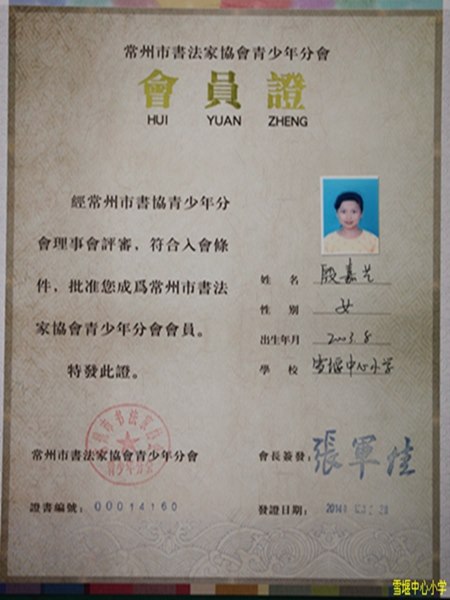 常州市書法家協會青少年分會
會員證
HUI YUAN ZHENG
經常州市書協青少年分
會理事會評審，符合入會條
件，批准您成爲常州市書法
家協會青少年分會會員。
特發此證。
姓 名 殷嘉艺
性 别 女
出生年月 2003.8
學 校 雪堰中心小学
常州市書法家協會青少年分會
青少年分会
會長簽發：張軍佳
證書編號：00014160
發證日期：2014
雪堰中心小学